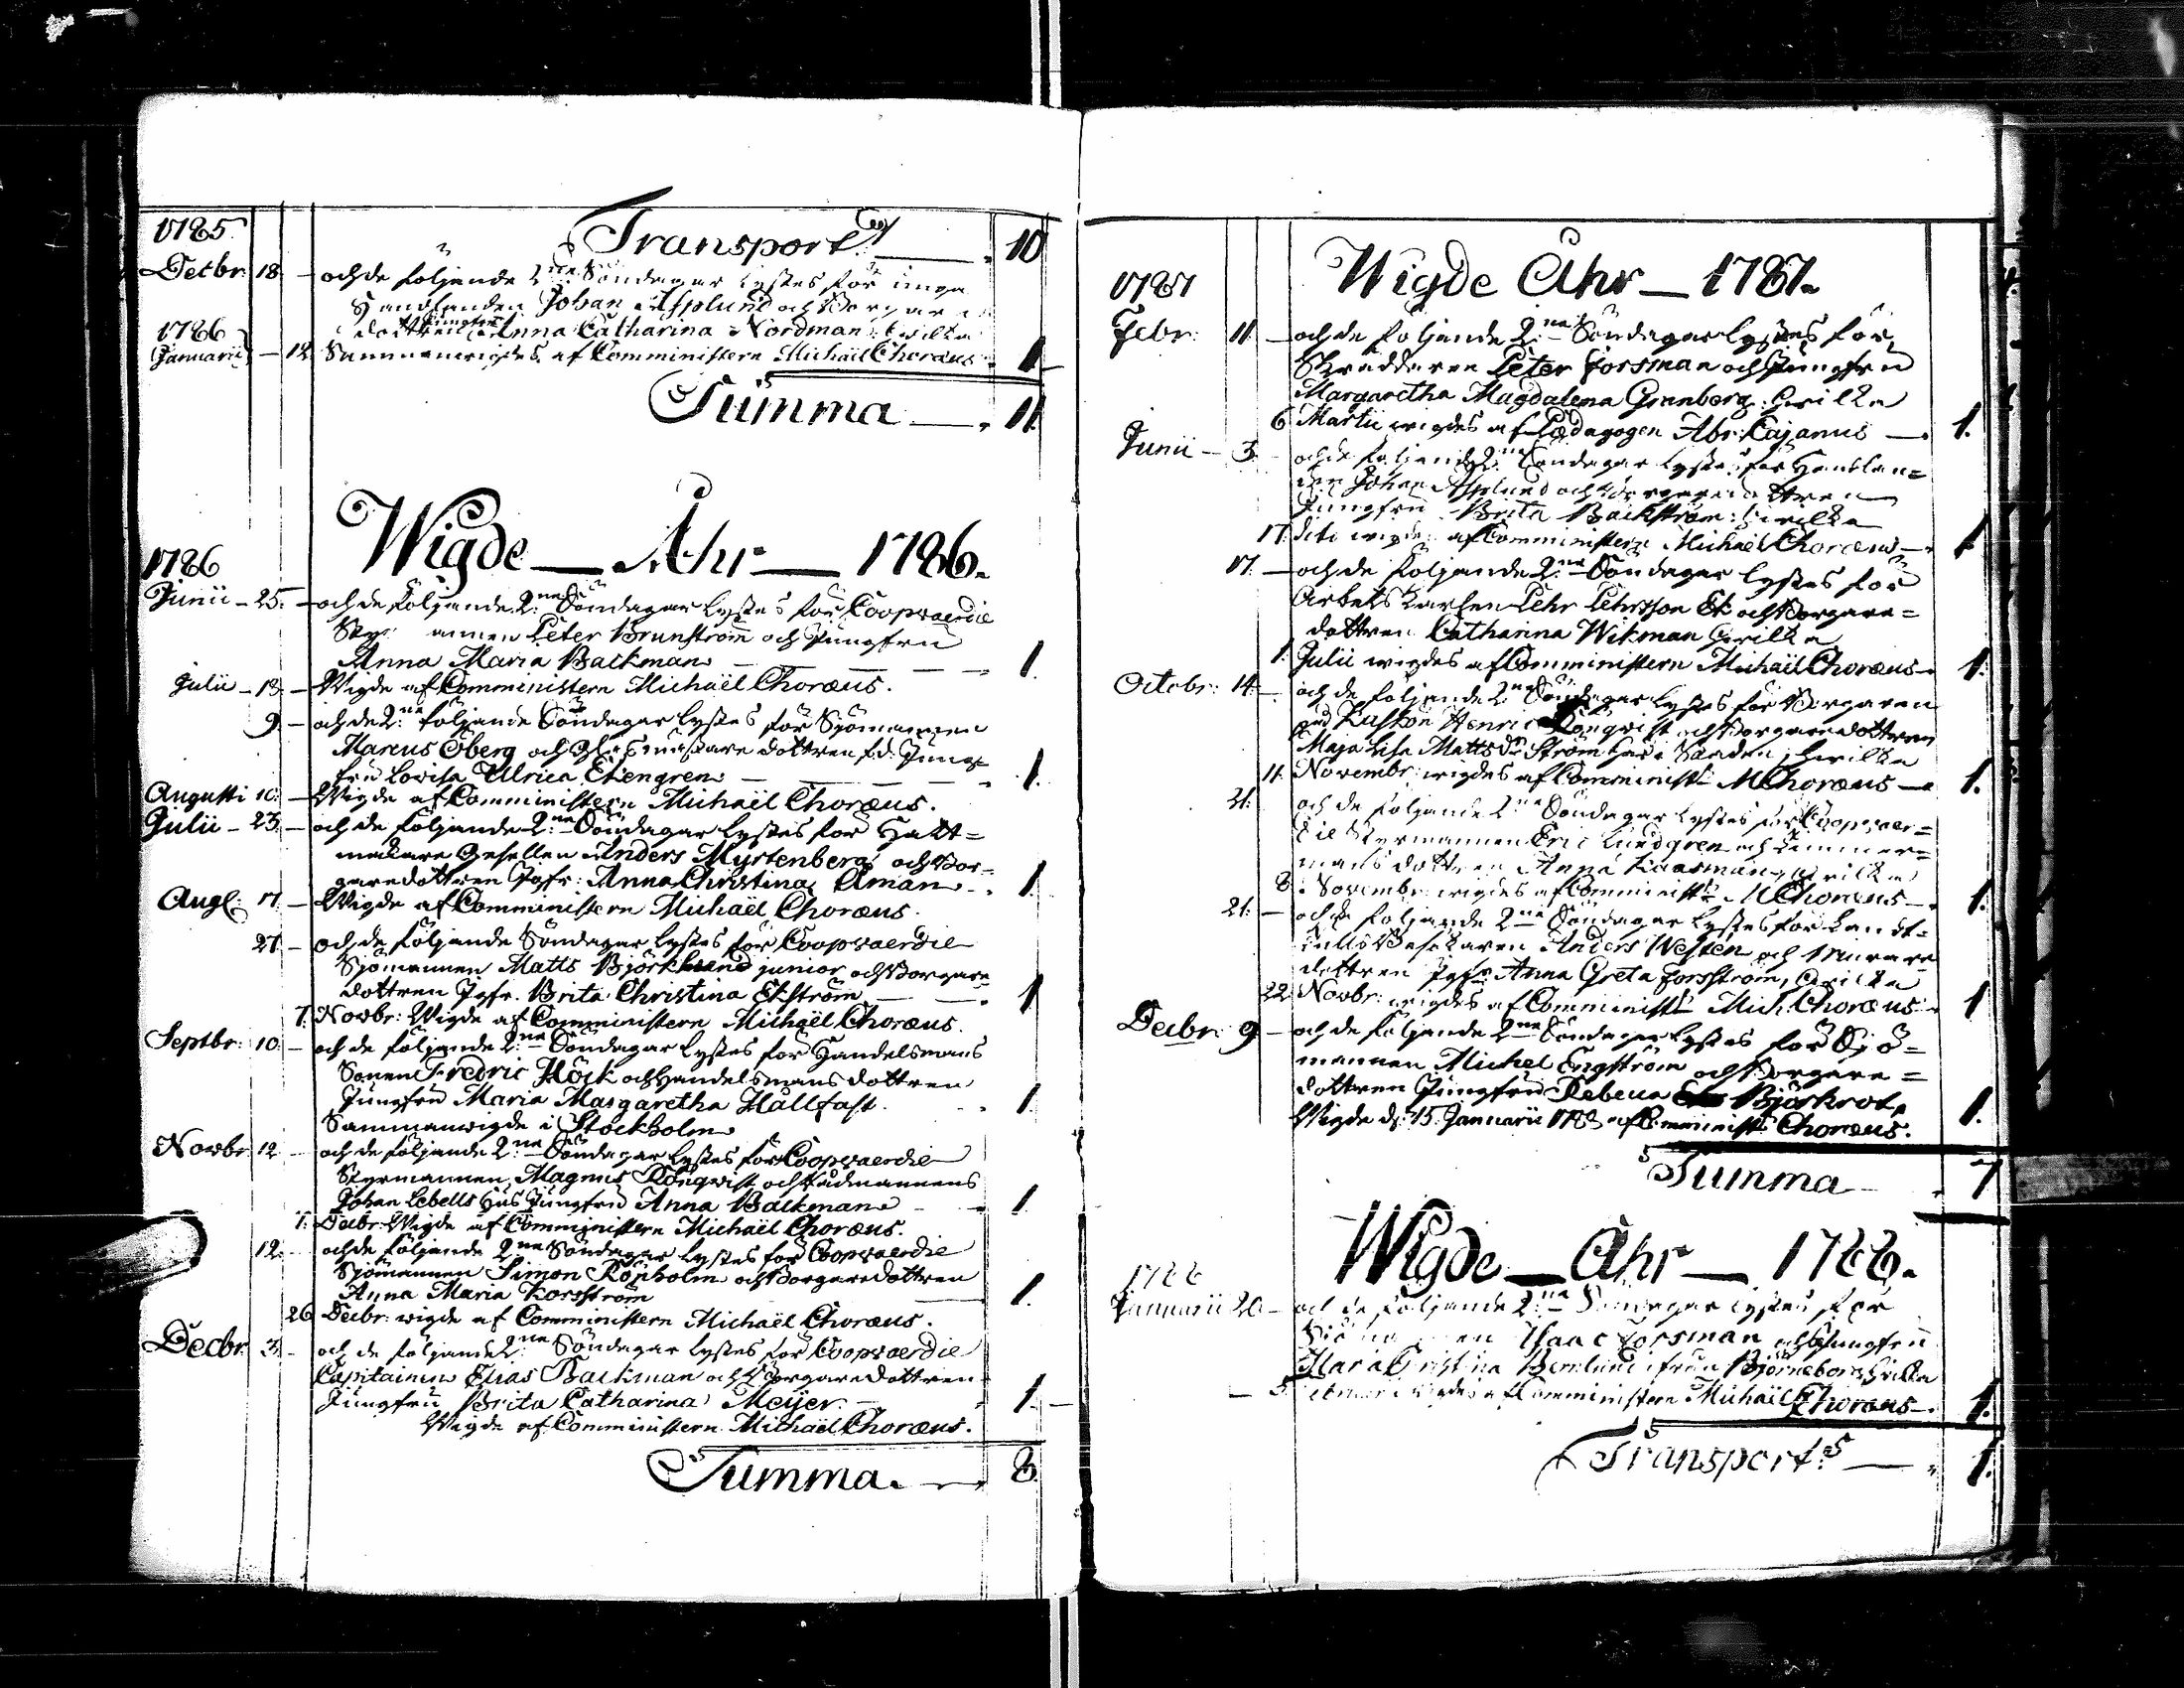 1785.
Transport 10
Decbr: 18. och de följande 2:ne Söndagar lystes för unga
Handlanden Johan Asplund och Borgare
dottren Jungfru Anna Catharina Nordman: hvilka
1786
Januarii 12. Sammanwigdes af Comministern Michaël Choræus 1
Summa 11.
Wigde Åhr 1786.
1786
Junii 25. och de följande 2:ne Söndagar lystes för Coopvaerdie
Styrmannen Peter Brunström och Jungfru
Anna Maria Backman 1.
Julii 13. Wigde af Comministern Michaël Choræus.
9. och de 2:ne följande Söndagar lystes för Sjömannen
Marcus Öberg och dottren Jung-
fru Lovisa Ulrica Ekengren 1.
Augusti 10. Wigde af Comministern Michaël Choræus.
Julii 23. och de följande 2:ne Söndagar lystes för Hatt=
makare Gesellen Anders Myrtenberg och Bor-
garedottren Jgfr: Anna Christina Åman 1.
Aug: 17. Wigde af Comministern Michaël Choræus.
27. och de följande Söndagar lystes för Coopvaerdie
Sjömannen Matts Björklund junior och Borgare
dottren Jgfr. Brita Christina Ekström 1
7. Novbr: Wigde af Comministern Michaël Choræus.
Septbr: 10. och de följande 2:ne Söndagar lystes för Handelsmans
Sonen Fredric Höck och Handelsmans dottren
Jungfru Maria Margaretha Hallfast. 1.
Sammanwigde i Stockholm
Novbr 12 och de följande 2:ne Söndagar lystes för Coopvaerdie
Styrmannen Magnus Rönqvist och Rådmannens
Johan Lebells Hus Jungfru Anna Backman 1
7. Decbr: Wigde af Comministern Michaël Choræus.
12. och de följande 2:ne Söndagar lystes för Coopvaerdie
Sjömannen Simon Röpholm och Borgaredottren
Anna Maria Korsström 1.
26 Decbr: wigde af Comministern Michaël Choræus.
Decbr. 3. och de följande 2:ne Söndagar lystes för Coopvaerdie
Capitainen Elias Backman och Borgaredottren
Jungfru Brita Catharina Meijer. 1.
Wigde af Comministern Michaël Choræus.
Summa. 8.
Wigde Åhr 1787.
1787
Febr: 11. och de följande 2:ne Söndagar lystes för
Skräddaren Peter Forsman och Jungfru
Margaretha Magdalena Granberg: hvilka
6 Martii wigdes af Pædagogen Abr: Cajanus 1.
Junii 3. och de följande 2:ne Söndagar lystes för Handlan=
den Johan Asplund och Borgaredottren
Jungfru Brita Backström: hvilka
17. dito wigdes af Comministern Michaël Choræus 1
17. och de följande 2:ne Söndagar lystes för
Arbets Karlen Pehr Pehrsson Ek och Borgare=
dottren Catharina Wikman hvilka
1. Julii wigdes af Comministern Michaël Choræus 1.
Octobr: 14. och de följande 2:ne Söndagar lystes för Borgaren
Henric Rönqvist och Borgaredottren
Maja Lisa Matts dr Ström hvilka
11. Novembr: wigdes af Comminist: M Choræus 1.
21. och de följande 2:ne Söndagar lystes för Coopvaer=
die Styrmannen Eric Lundgren och Timmer=
mans dottren Anna Kaasman, hvilka
8. Novembr: wigdes af Comminist: M Choræus 1.
21. och de följande 2:ne Söndagar lystes för Landt=
Anders Westen och Murare
dottren Jgfr: Anna Greta Forsström, hvilka
22. Novbr: wigdes af Comminist: Mich: Choræus 1
Decbr: 9 och de följande 2:ne Söndagar lystes för Sjö=
mannen Michel Engström och Borgare=
dottren Jungfru Rebecca Björkrot.
Wigde d: 15 Januarii 1788 af Comminist: Choræus. 1.
Summa 7
Wigde Åhr 1788.
1788
Januarii 20 och de följande 2:ne Söndagar lystes för
Sjömannen Isaac Forsman och Jungfru
Maria Christina Bernlund ifrån Björneborg hvilka
wigdes af Comministern Michaël Choræus 1.
Transport 1.